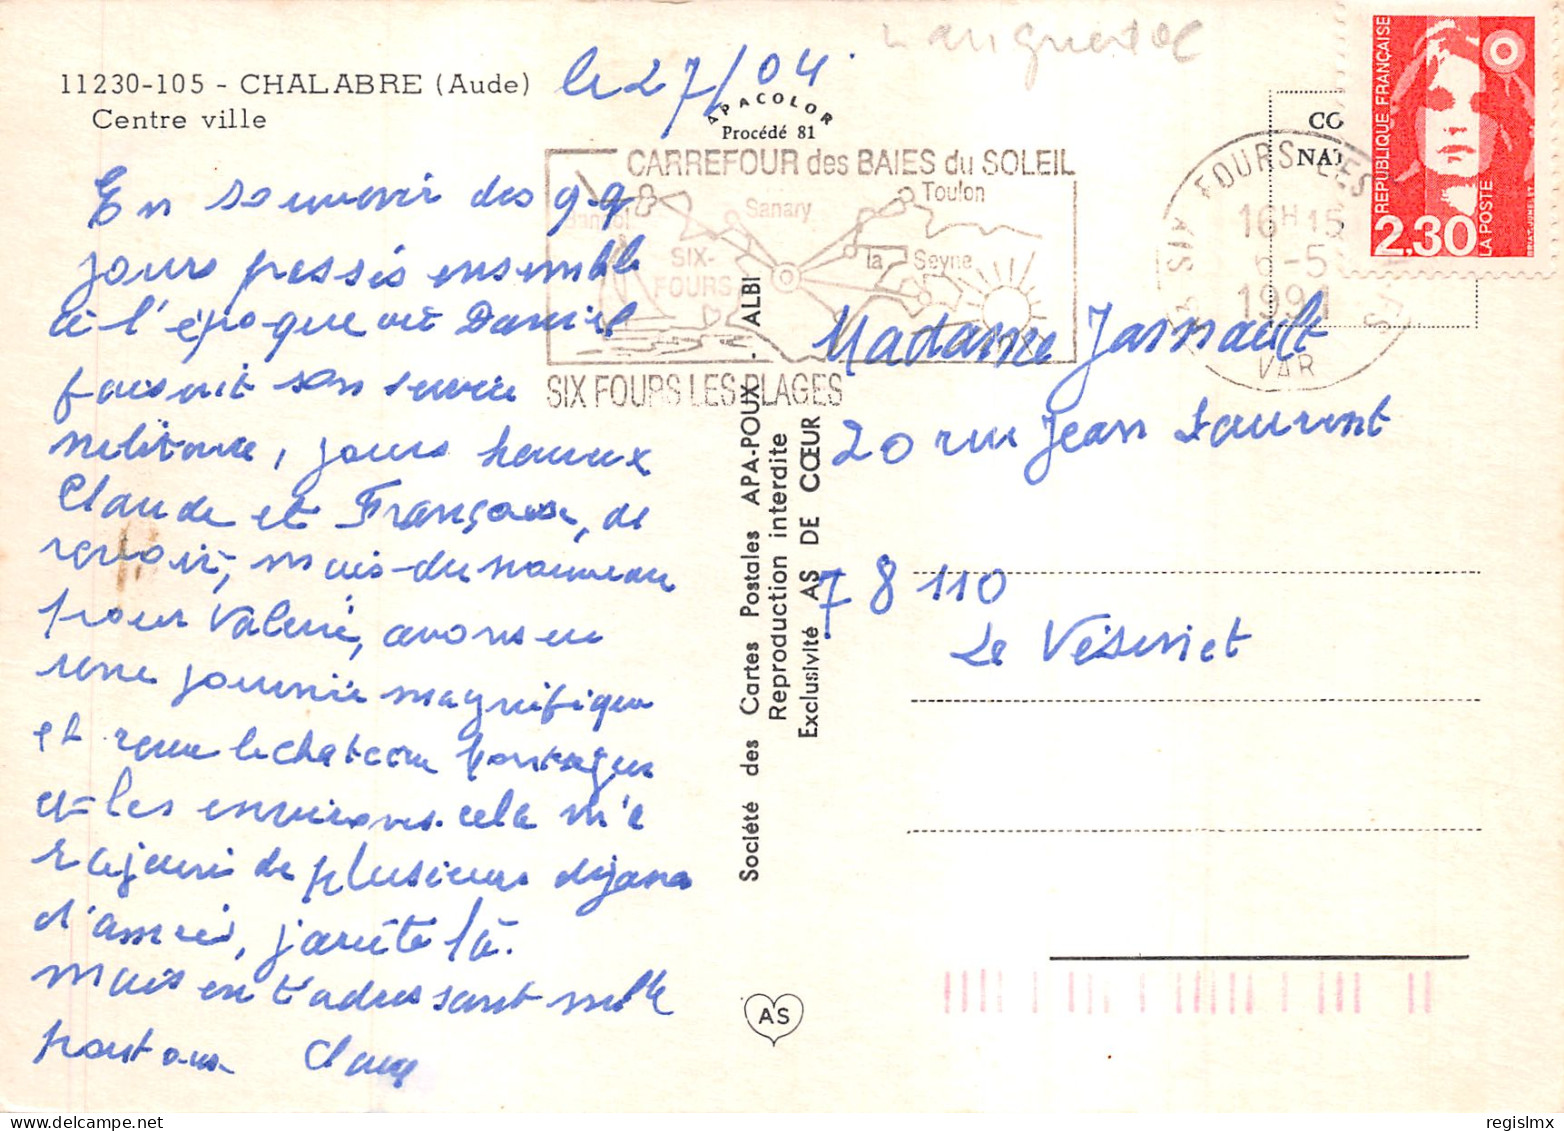 Languedoc
11230-105 - CHALABRE (Aude)
Centre ville
le 27/04.
APACOLOR
Procédé 81
CARREFOUR des BAIES du SOLEIL
Toulon
Sanary
Bandol
la Seyne
SIX-
FOURS
SIX FOURS LES PLAGES
SIX FOURS LES PLAGES
16H15
6-5
1991
VAR
CO
NAT
REPUBLIQUE FRANÇAISE
2,30
LA POSTE
BRIAT-JUMELET
En souvenir des q.q
jours passés ensemble
à l'époque où Daniel
faisait son service
militaire, jours heureux
Claude et Françoise, de
revoir, mais du nouveau
pour Valérie, avons eu
une journée magnifique
et revu le chateau
et les environs. cela m'a
rajeuni de plusieurs dizaines
d'années, j'arrête là.
Mais en t'adressant mille
Madame Jarnault
20 rue Jean Laurent
78110
Le Vésinet
Société des Cartes Postales APA-POUX - ALBI
Reproduction interdite
Exclusivité AS DE CŒUR
AS